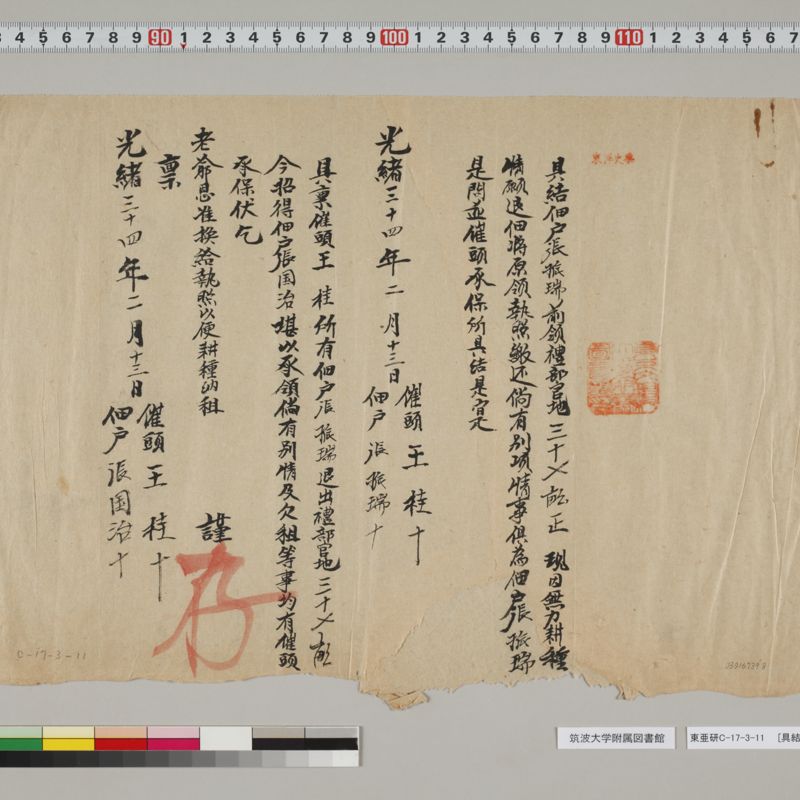 具結佃户張振瑞前領禮部官地三十〤畝正現因無力耕種
情願退佃將原領執照繳还倘有别項情事俱為佃户張振瑞
是問並催頭承保所具結是寔
光緒三十四年二月十三日
催頭王桂十
佃户張振瑞十
具稟催頭王桂所有佃户張振瑞退出禮部官地三十〤畝
今招得佃户張国治堪以承領倘有别情及欠租等事均有催頭
承保伏乞
老爺恩准換給執照以便耕種納租
謹
稟
光緒三十四年二月十三日
催頭王桂十
佃户張国治十
存
C-17-3-11
3 4 5 6 7 8 9 90 1 2 3 4 5 6 7 8 9 100 1 2 3 4 5 6 7 8 9 110 1 2 3 4 5 6 7
筑波大学附属図書館
東亜研C-17-3-11 [具結